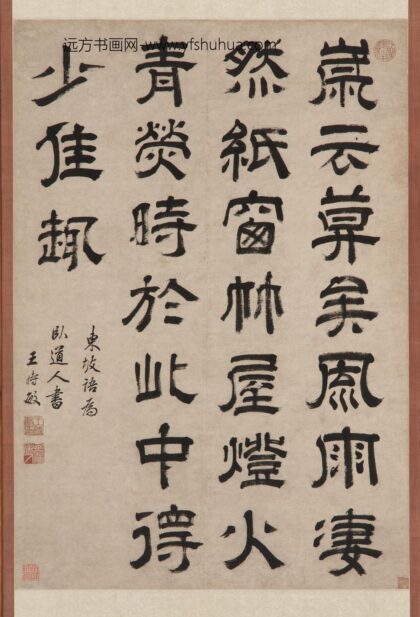 远方书画网-www.yfshuhua.com
歲云莫矣風雨淒
然紙窗竹屋燈火
青熒時於此中得
少佳趣
東坡語為
臥道人書
王時敏